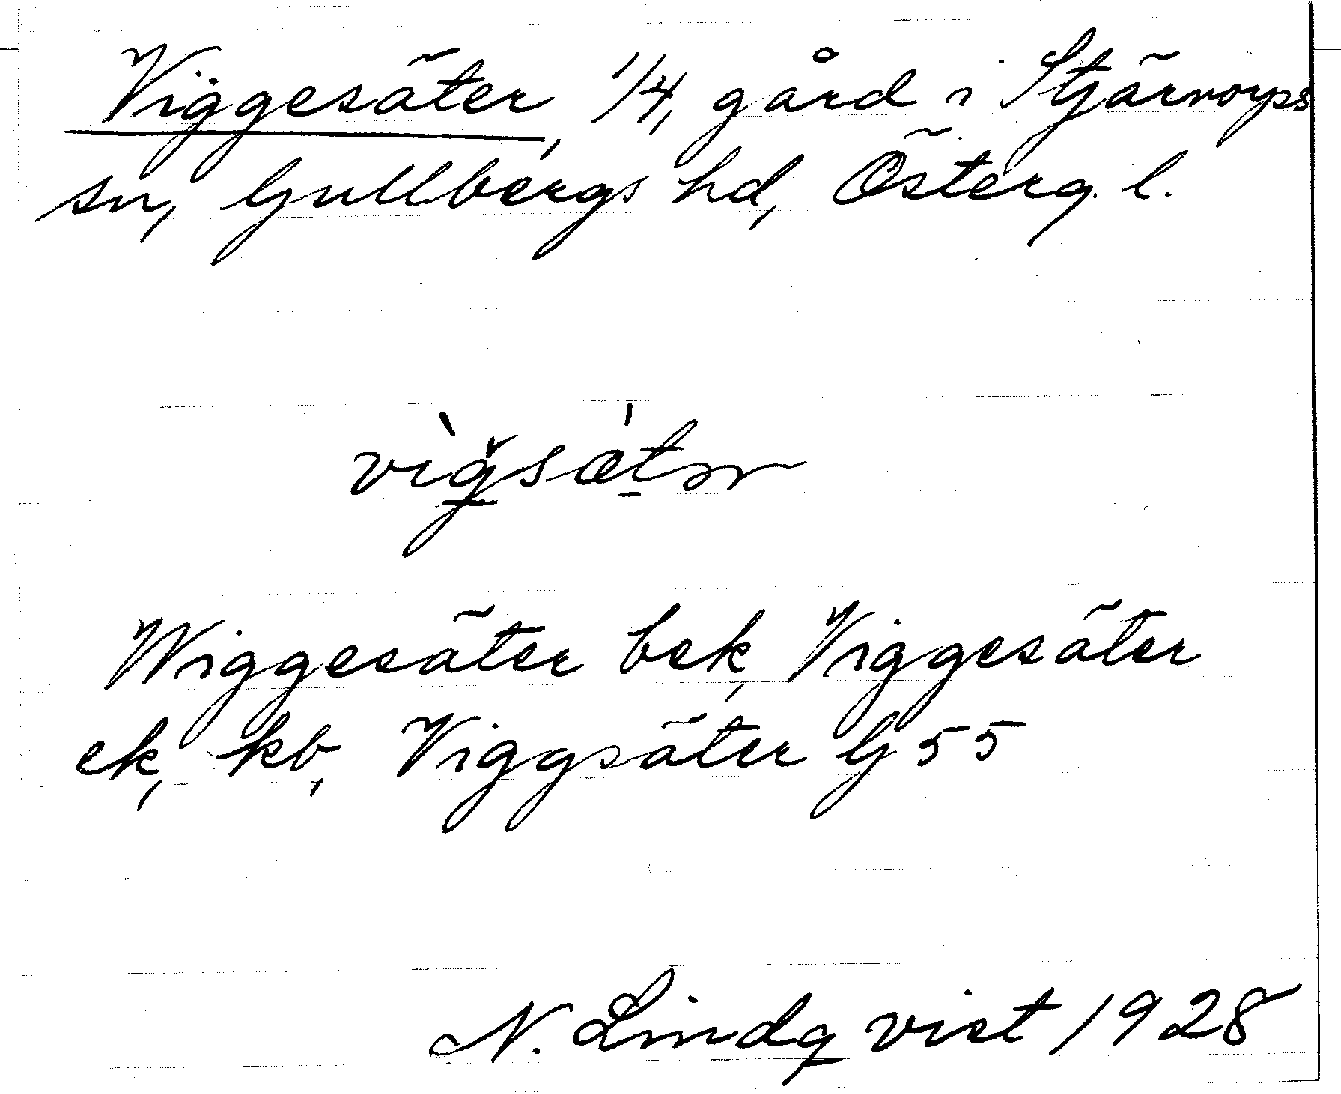 Viggesäter, 1/4, gård i Stjärnorps
sn, Gullbergs hd, Österg. l.
vìğ̲sæ̀t̲ər
Wiggesäter bek, Viggesäter
ek, kb, Viggsäter G 55
N. Lindqvist 1928